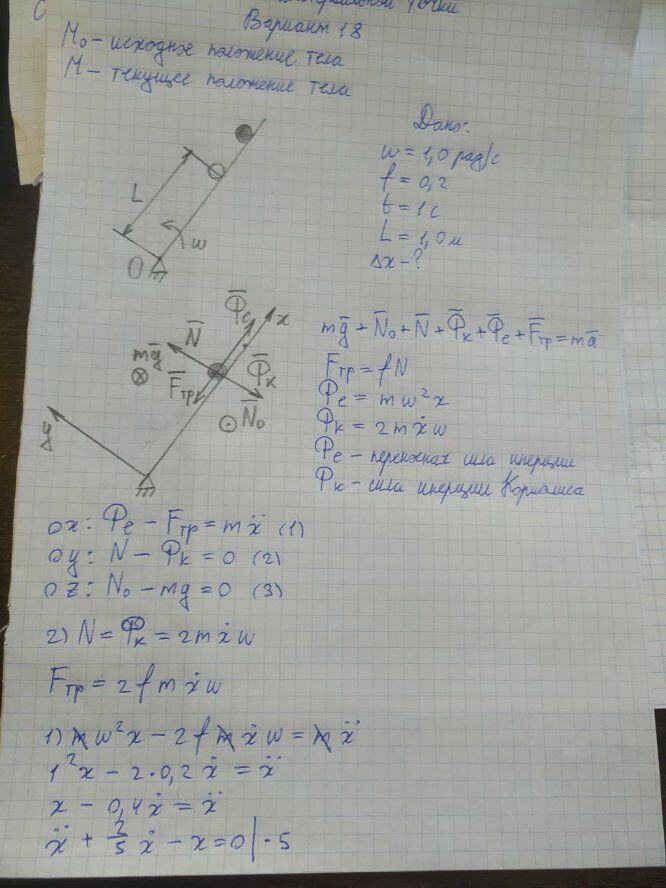 точки
Вариант 18
M₀ – исходное положение тела
M – текущее положение тела
Дано:
w = 1,0 рад/с
f = 0,2
t = 1 с
L = 1,0 м
Δx – ?
L
w
O
Φ̄e
x
N̄
mḡ
F̄тр
Φ̄к
N̄₀
y
mḡ + N̄₀ + N̄ + Φ̄к + Φ̄e + F̄тр = mā
Fтр = fN
Φe = mw²x
Φк = 2mẋw
Φe – переносная сила инерции
Φк – сила инерции Кориолиса
ox: Φe – Fтр = mẍ (1)
oy: N – Φк = 0 (2)
oz: N₀ – mg = 0 (3)
2) N = Φк = 2mẋw
Fтр = 2fmẋw
1) mw²x – 2fmẋw = mẍ
1²x – 2·0,2ẋ = ẍ
x – 0,4ẋ = ẍ
ẍ + 2/5 ẋ – x = 0 | · 5